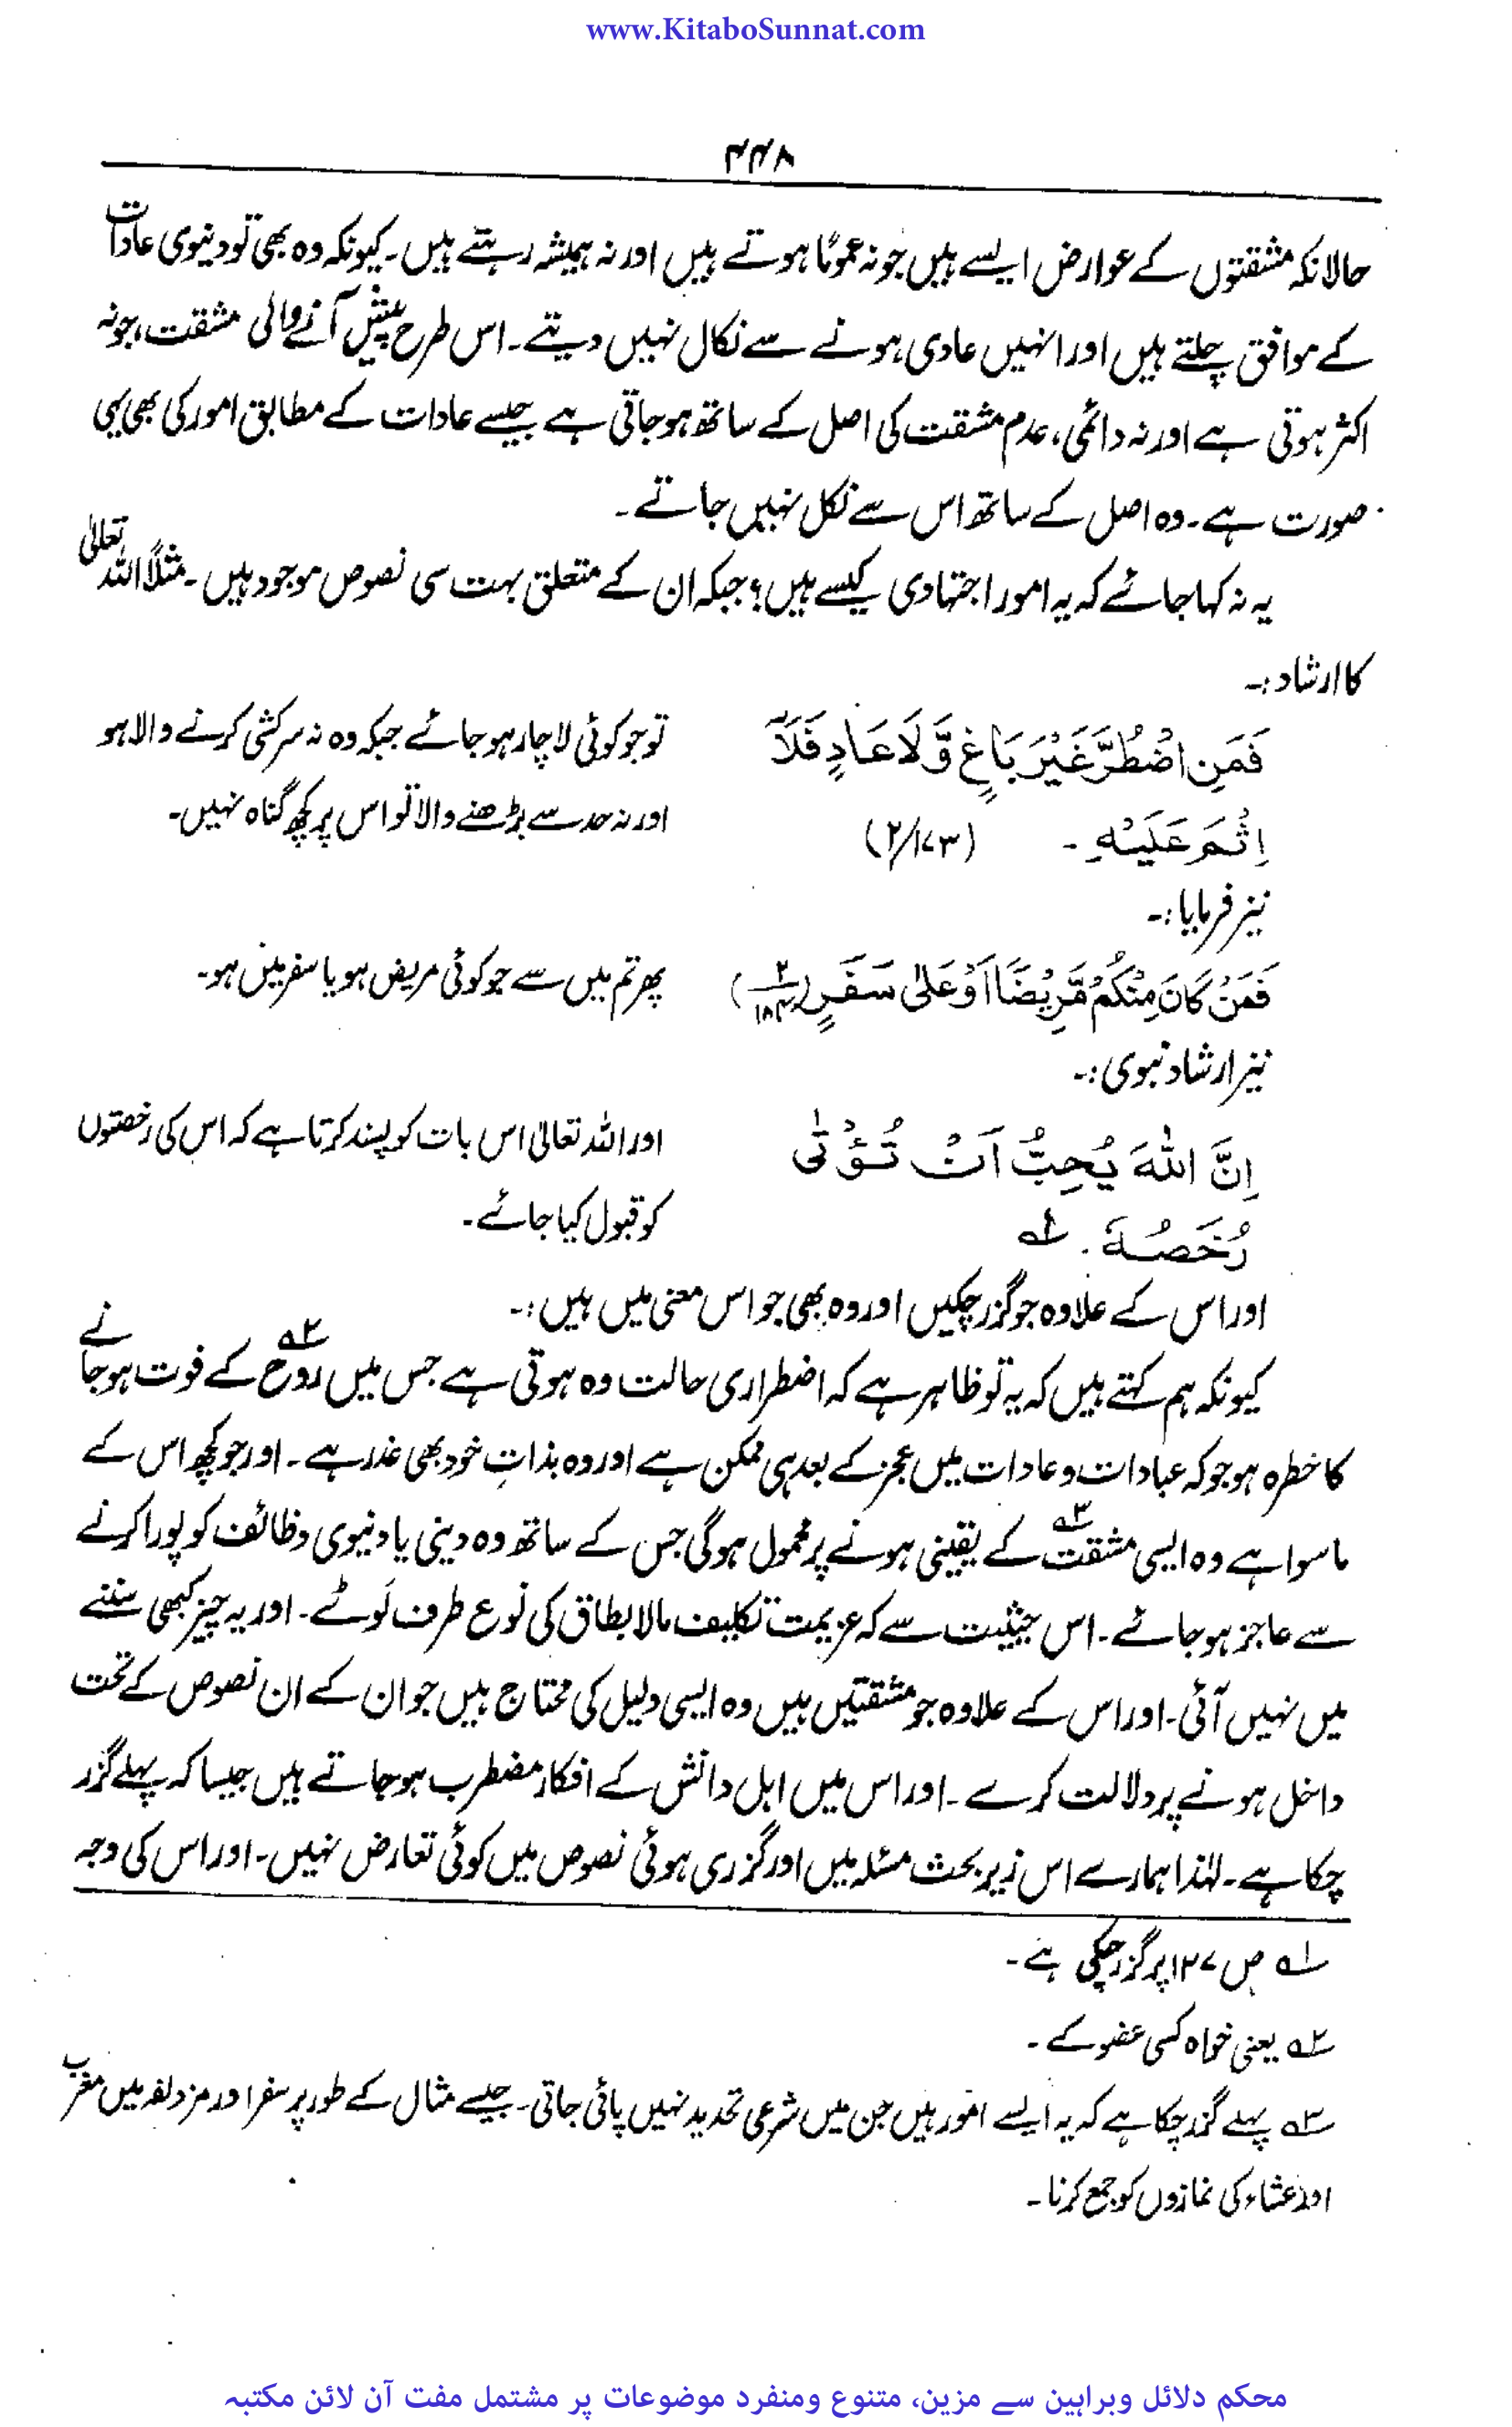 www.KitaboSunnat.com
۴۴۸
حالانکہ مشقتوں کے عوارض ایسے ہیں جو نہ عموماً ہوتے ہیں اور نہ ہمیشہ رہتے ہیں۔ کیونکہ وہ بھی تو دنیوی عادات
کے موافق چلتے ہیں اور انہیں عادی ہونے سے نکال نہیں دیتے۔ اس طرح پیش آنے والی مشقت، جو نہ
اکثر ہوتی ہے اور نہ دائمی، عدم مشقت کی اصل کے ساتھ ہو جاتی ہے جیسے عادات کے مطابق امور کی بھی یہی
صورت ہے۔ وہ اصل کے ساتھ اس سے نکل نہیں جاتے۔
یہ نہ کہا جائے کہ یہ امور اجتہادی کیسے ہیں؟ جبکہ ان کے متعلق بہت سی نصوص موجود ہیں۔ مثلاً اللہ تعالیٰ
کا ارشاد :۔
فَمَنِ اضْطُرَّ غَيْرَ بَاغٍ وَّلَا عَادٍ فَلَآ تو جو کوئی لاچار ہو جائے جبکہ وہ نہ سرکشی کرنے والا ہو
اِثْمَ عَلَيْهِ ۔ (۲/۱۷۳) اور نہ حد سے بڑھنے والا تو اس پر کچھ گناہ نہیں۔
نیز فرمایا :۔
فَمَنْ كَانَ مِنْكُمْ مَّرِيْضًا اَوْ عَلٰى سَفَرٍ (۲/۱۸۴) پھر تم میں سے جو کوئی مریض ہو یا سفر میں ہو۔
نیز ارشاد نبوی :۔
اِنَّ اللهَ يُحِبُّ اَنْ تُؤْتٰى اور اللہ تعالیٰ اس بات کو پسند کرتا ہے کہ اس کی رخصتوں
رُخَصُهٗ ۔ ۱ه کو قبول کیا جائے۔
اور اس کے علاوہ جو گزر چکیں اور وہ بھی جو اس معنی میں ہیں :۔
کیونکہ ہم کہتے ہیں کہ یہ تو ظاہر ہے کہ اضطراری حالت وہ ہوتی ہے جس میں روح ۲ه کے فوت ہو جانے
کا خطرہ ہو جو کہ عبادات و عادات میں عجز کے بعد ہی ممکن ہے اور وہ بذاتِ خود بھی عذر ہے۔ اور جو کچھ اس کے
ماسوا ہے وہ ایسی مشقت ۳ه کے یقینی ہونے پر محمول ہوگی جس کے ساتھ وہ دینی یا دنیوی وظائف کو پورا کرنے
سے عاجز ہو جائے۔ اس حیثیت سے کہ عزیمت تکلیف مالا یطاق کی نوع طرف لَوٹے۔ اور یہ چیز کبھی سننے
میں نہیں آئی۔ اور اس کے علاوہ جو مشقتیں ہیں وہ ایسی دلیل کی محتاج ہیں جو ان کے ان نصوص کے تحت
داخل ہونے پر دلالت کرے۔ اور اس میں اہل دانش کے افکار مضطرب ہو جاتے ہیں جیسا کہ پہلے گزر
چکا ہے۔ لہٰذا ہمارے اس زیر بحث مسئلہ میں اور گزری ہوئی نصوص میں کوئی تعارض نہیں۔ اور اس کی وجہ
۱ه ص ۱۲۷ پر گزر چکی ہے۔
۲ه یعنی خواہ کسی عضو کے۔
۳ه پہلے گزر چکا ہے کہ یہ ایسے امور ہیں جن میں شرعی تحدید نہیں پائی جاتی۔ جیسے مثال کے طور پر سفر اور مزدلفہ میں مغرب
اور عشاء کی نمازوں کو جمع کرنا۔
محکم دلائل وبراہین سے مزین، متنوع ومنفرد موضوعات پر مشتمل مفت آن لائن مکتبہ